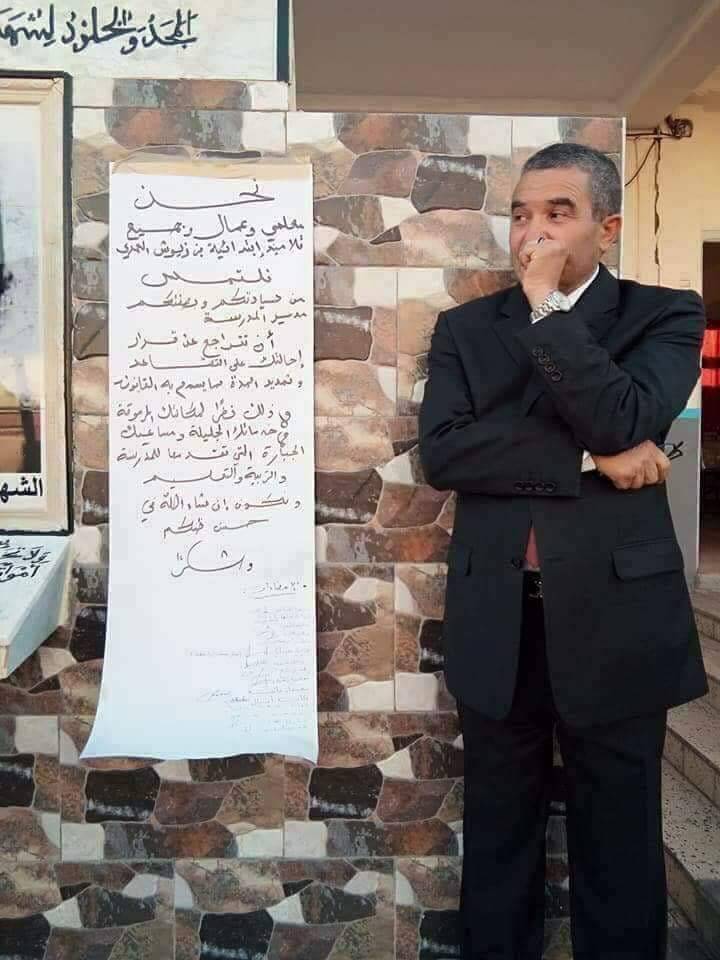 المجد والخلود لشهد
نحن
معلمي وعمال وجميع
تلاميذ إبتدائية بن زليوش العمري
نلتمس
من سيادتكم وبصفتكم
مدير المدرسة
أن تتراجع عن قرار
إحالتك على التقاعد
و تمديد المدة مما يسمح به القانون
و ذلك نظرًا لمكانتك المرموقة
في خدماتك الجليلة و مساعيك
الجبارة التي تقدمها للمدرسة
والتربية والتعليم
و نكون إن شاء الله في
حسن ظنكم
و شكرًا
الإمضاءات :
الشه
ولا تح
أموا